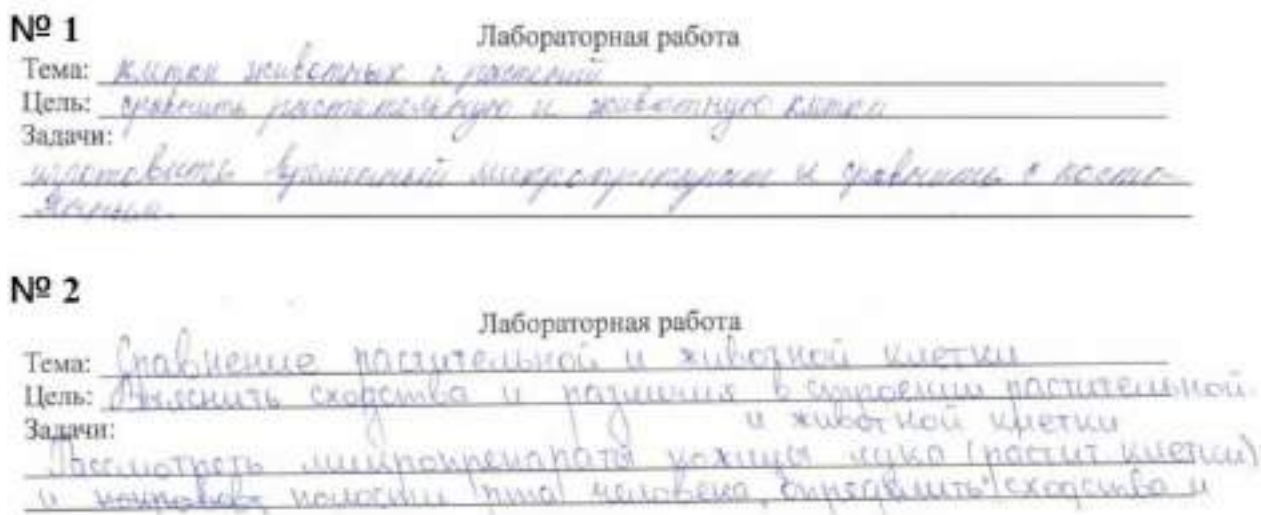 № 1
Лабораторная работа
Тема: клетки животных и растений
Цель: сравнить растительную и животную клетки
Задачи:
изготовить временный микропрепарат и сравнить с посто-
янным.
№ 2
Лабораторная работа
Тема: Сравнение растительной и животной клетки
Цель: Выяснить сходства и различия в строении растительной
и животной клетки
Задачи:
Рассмотреть микропрепараты кожицы лука (растит клетки)
и полости рта человека, определить сходства и